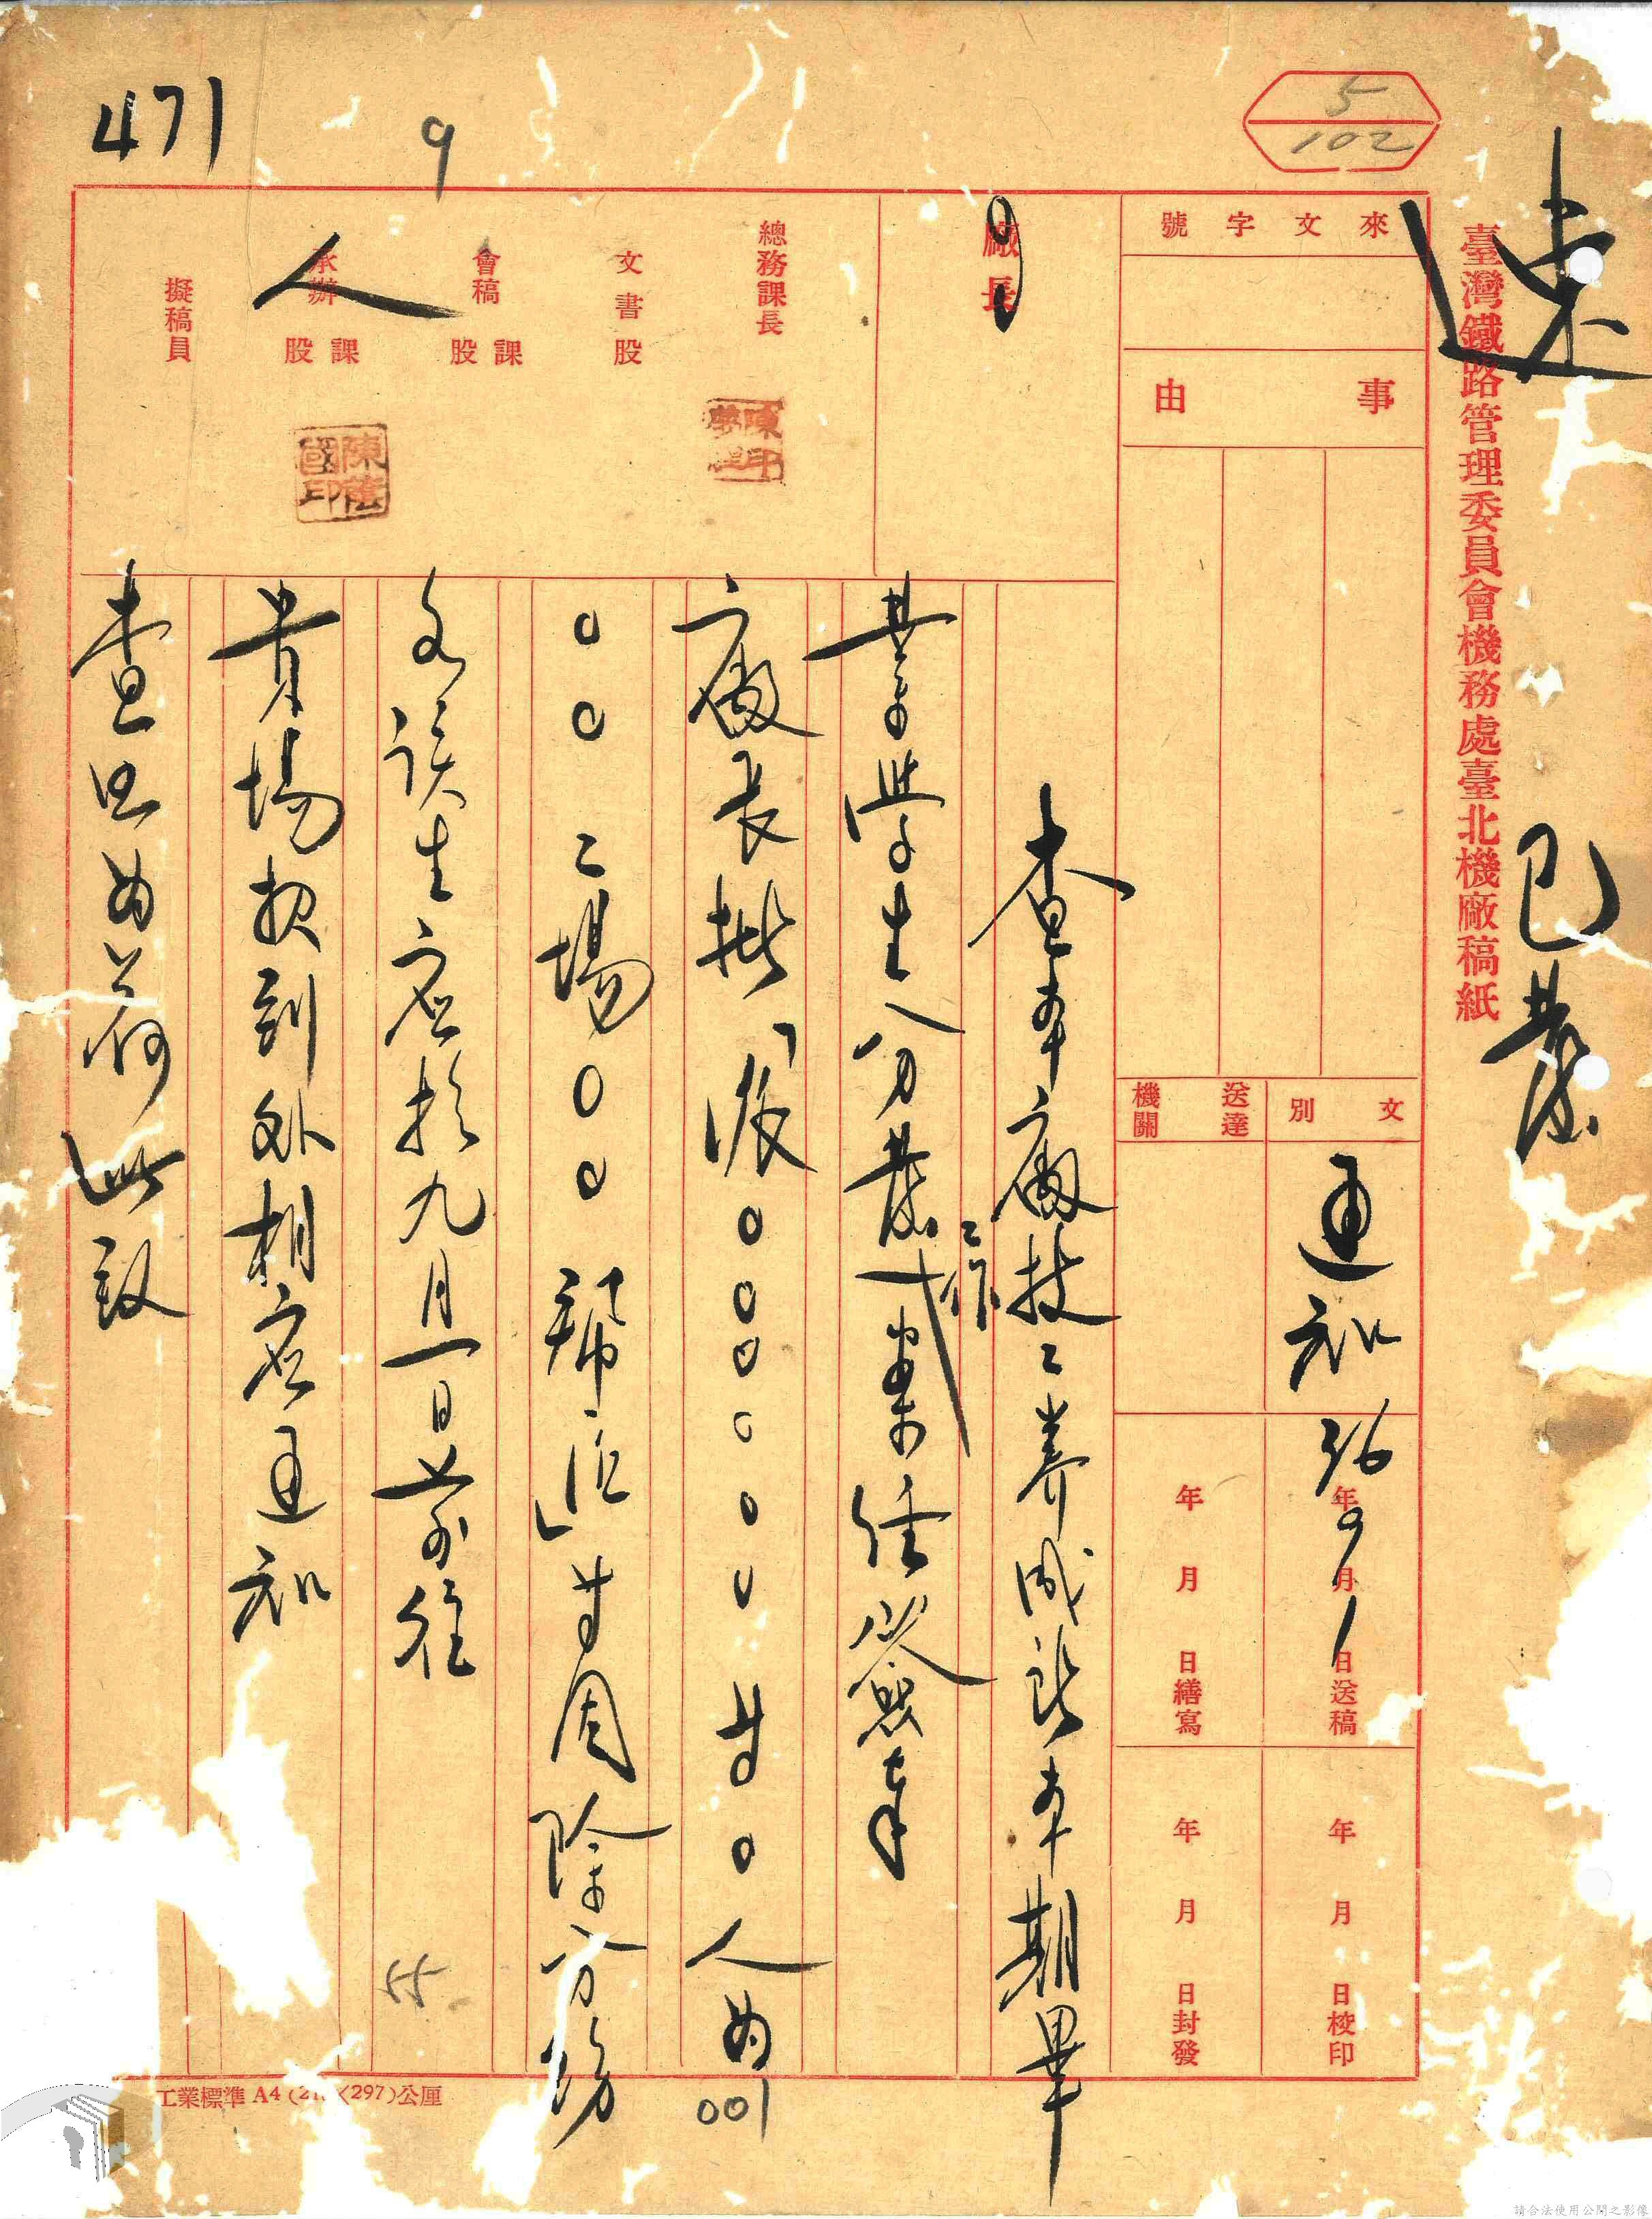 速
已發
臺灣鐵路管理委員會機務處臺北機廠稿紙
5
102
來文字號
事由
文別
通知
送達機關
36年9月1日送稿
年月日繕寫
年月日校印
年月日封發
廠長
總務課長
文書股
會稿 課 股
承辦 課 股
人
擬稿員
陳國印
471
9
查本廠技工養成所本期畢
業學生分發工作一案經簽奉
廠長批「派○○○○○○等○人為
○○工場○○號位」等因除分飭
該生應於九月一日前往
貴場報到外相應通知
查照為荷此致
55
001
工業標準A4(210×297)公厘
請合法使用公開之影像